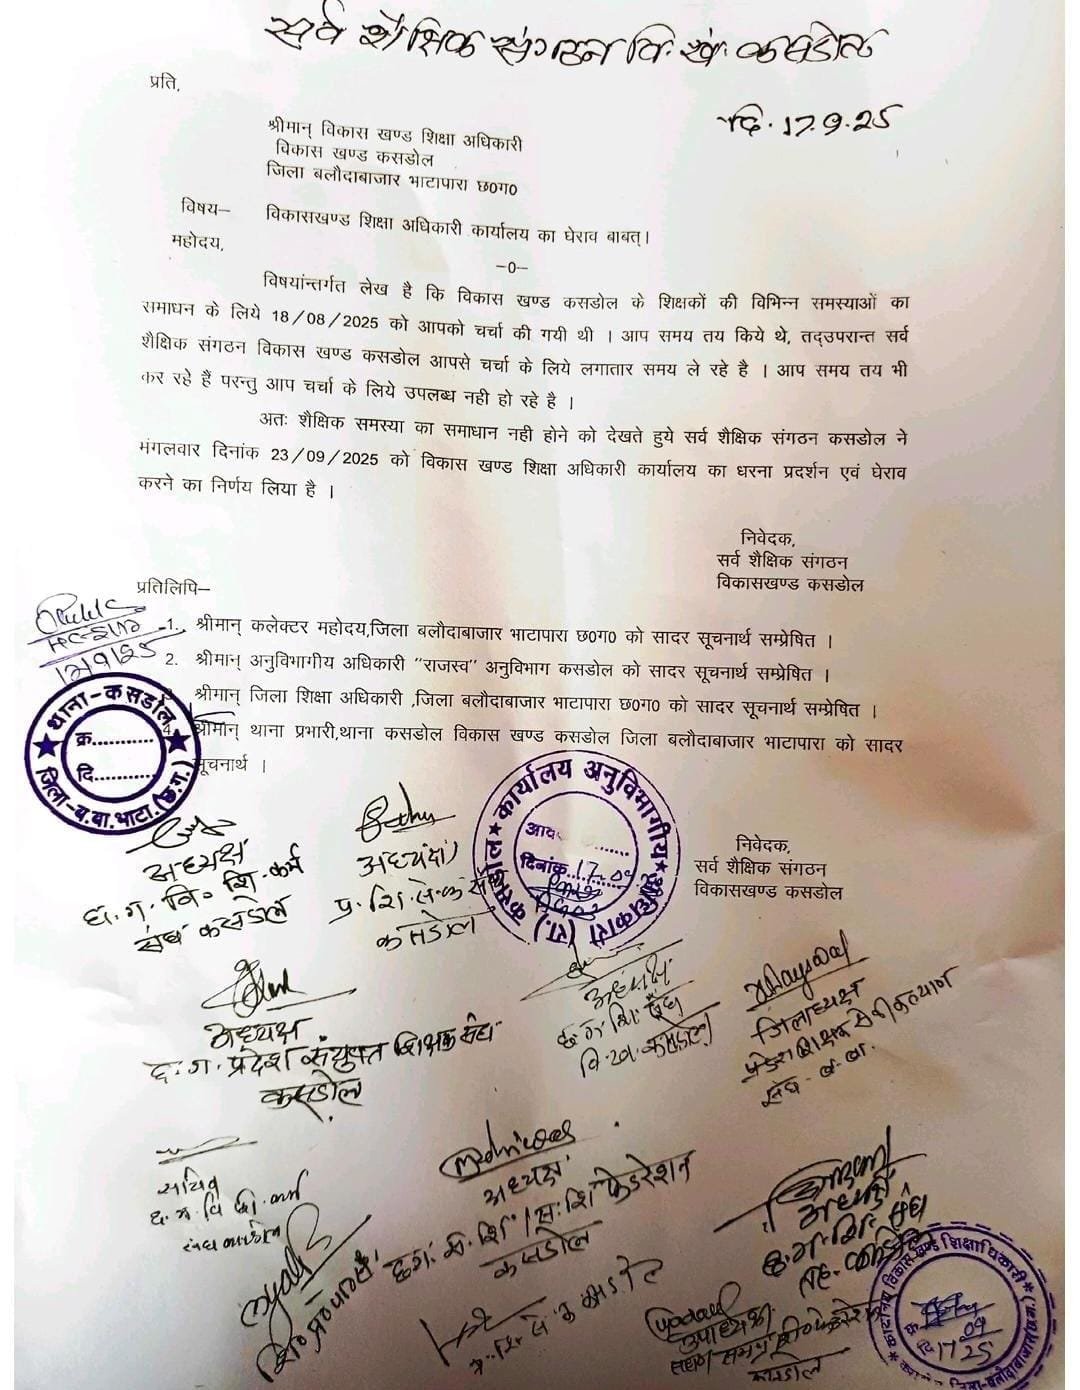 सर्व शैक्षिक संगठन वि. खं. कसडोल
दि. 17.9.25
प्रति,
श्रीमान् विकास खण्ड शिक्षा अधिकारी
विकास खण्ड कसडोल
जिला बलौदाबाजार भाटापारा छ0ग0
विषय– विकासखण्ड शिक्षा अधिकारी कार्यालय का घेराव बाबत्।
महोदय,
–0–
विषयांन्तर्गत लेख है कि विकास खण्ड कसडोल के शिक्षकों की विभिन्न समस्याओं का
समाधन के लिये 18/08/2025 को आपको चर्चा की गयी थी । आप समय तय किये थे, तद्उपरान्त सर्व
शैक्षिक संगठन विकास खण्ड कसडोल आपसे चर्चा के लिये लगातार समय ले रहे है । आप समय तय भी
कर रहे हैं परन्तु आप चर्चा के लिये उपलब्ध नही हो रहे है ।
अतः शैक्षिक समस्या का समाधान नही होने को देखते हुये सर्व शैक्षिक संगठन कसडोल ने
मंगलवार दिनांक 23/09/2025 को विकास खण्ड शिक्षा अधिकारी कार्यालय का धरना प्रदर्शन एवं घेराव
करने का निर्णय लिया है ।
निवेदक,
सर्व शैक्षिक संगठन
विकासखण्ड कसडोल
प्रतिलिपि–
1. श्रीमान् कलेक्टर महोदय,जिला बलौदाबाजार भाटापारा छ0ग0 को सादर सूचनार्थ सम्प्रेषित ।
2. श्रीमान् अनुविभागीय अधिकारी "राजस्व" अनुविभाग कसडोल को सादर सूचनार्थ सम्प्रेषित ।
श्रीमान् जिला शिक्षा अधिकारी ,जिला बलौदाबाजार भाटापारा छ0ग0 को सादर सूचनार्थ सम्प्रेषित ।
4. श्रीमान् थाना प्रभारी,थाना कसडोल विकास खण्ड कसडोल जिला बलौदाबाजार भाटापारा को सादर
सूचनार्थ ।
थाना-कसडोल
क्र...........
दि...........
जिला-ब.बा.भाटा.(छ.ग.)
कार्यालय अनुविभागीय अधिकारी (रा.) कसडोल
दिनांक 17-09
निवेदक,
सर्व शैक्षिक संगठन
विकासखण्ड कसडोल
अध्यक्ष
छ.ग. वि. शि. कर्म
संघ कसडोल
अध्यक्ष
प्र. शि. से. क. संघ
कसडोल
अध्यक्ष
छ.ग. प्रदेश संयुक्त शिक्षक संघ
कसडोल
अध्यक्ष
छ.ग. शि. संघ
वि.ख. कसडोल
जिलाध्यक्ष
सचिव
छ.ग. वि. शि. कर्मी
अध्यक्ष
फेडरेशन
कसडोल
अध्यक्ष
छ.ग. शि. संघ
उपाध्यक्ष
कसडोल
17 09 25